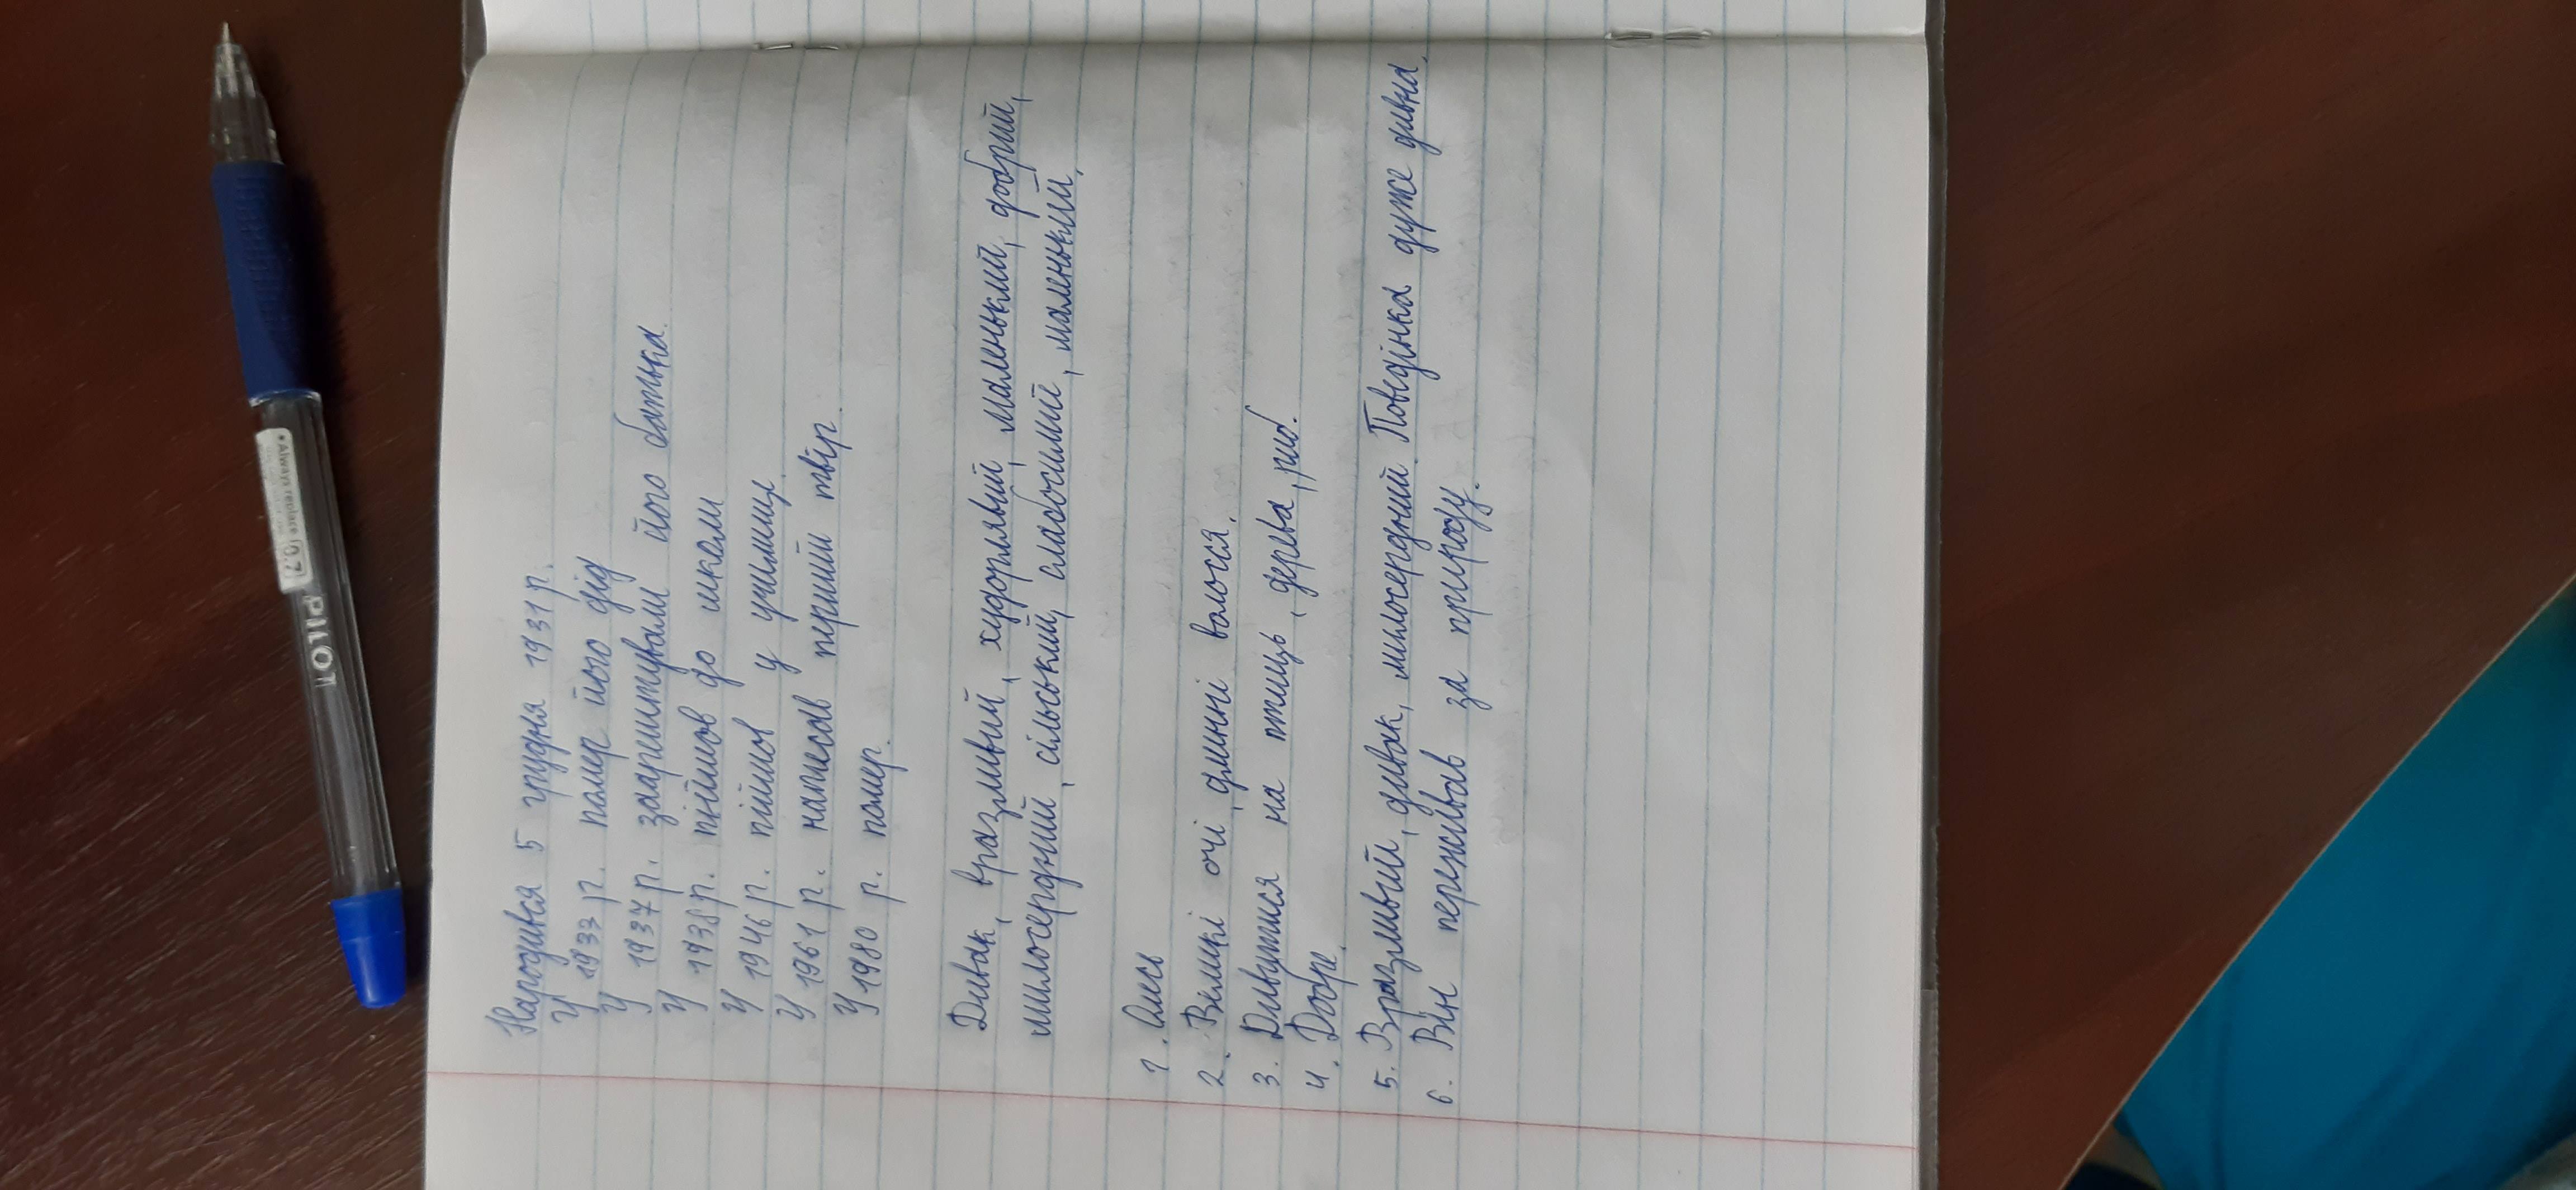 Народився 5 грудня 1931 р.
У 1933 р. помер його дід
У 1937 р. заарештували його батька.
У 1938 р. пійшов до школи
У 1946 р. пійшов у училище.
У 1961 р. написав перший твір.
У 1980 р. помер.
Дивак, вразливий, худорлявий, маленький, добрий,
милосердний, сільський, слабосилий, маленький.
1. Олесь
2. Великі очі, длинні волосся.
3. Дивитися на птиць, дерева, риб.
4. Добре.
5. Вразливий, дивак, милосердний. Поведінка дуже дивна.
6. Він переживав за природу.
PILOT
0.7